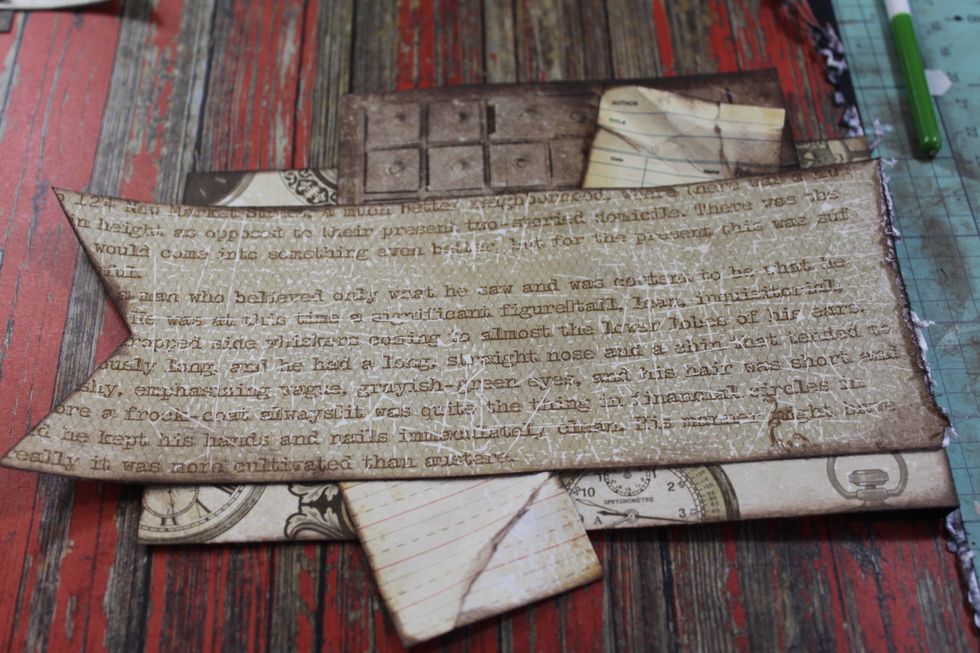 AUTHOR
TITLE
Date
Name
124 New Market Street, a much better neighborhood, where there was
height as opposed to their present two-storied domicile. There was the
would come into something even better, but for the present this was suf
man who believed only what he saw and was content to be what he
He was at this time a significant figure tall, lean, inquisitorial
ropped side whiskers coming to almost the lower lobes of his ears.
usly long, and he had a long, straight nose and a chin that tended to
hy, emphasizing vague, grayish-green eyes, and his hair was short and
ore a frock-coat always it was quite the thing in financial circles in
d he kept his hands and nails immaculately clean. His manner might have
really it was more cultivated than austere.
10
2
SPHYGMOMETRE
A
3